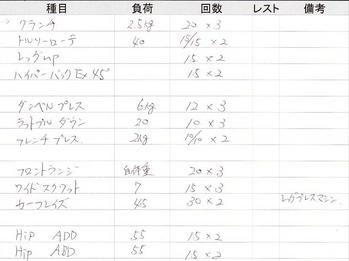 種目 負荷 回数 レスト 備考
クランチ 2.5kg 20×3
トルソーローテ 40 15/15×2
レッグup 15×2
ハイパーバックEx 45° 15×2
ダンベルプレス 6kg 12×3
ラットプルダウン 20 10×3
フレンチプレス 2kg 10/10×2
フロントランジ 自体重 20×3
ワイドスクワット 7 15×3
カーフレイズ 45 30×2 レッグプレスマシン
Hip ADD 55 15×2
Hip ABD 55 15×2